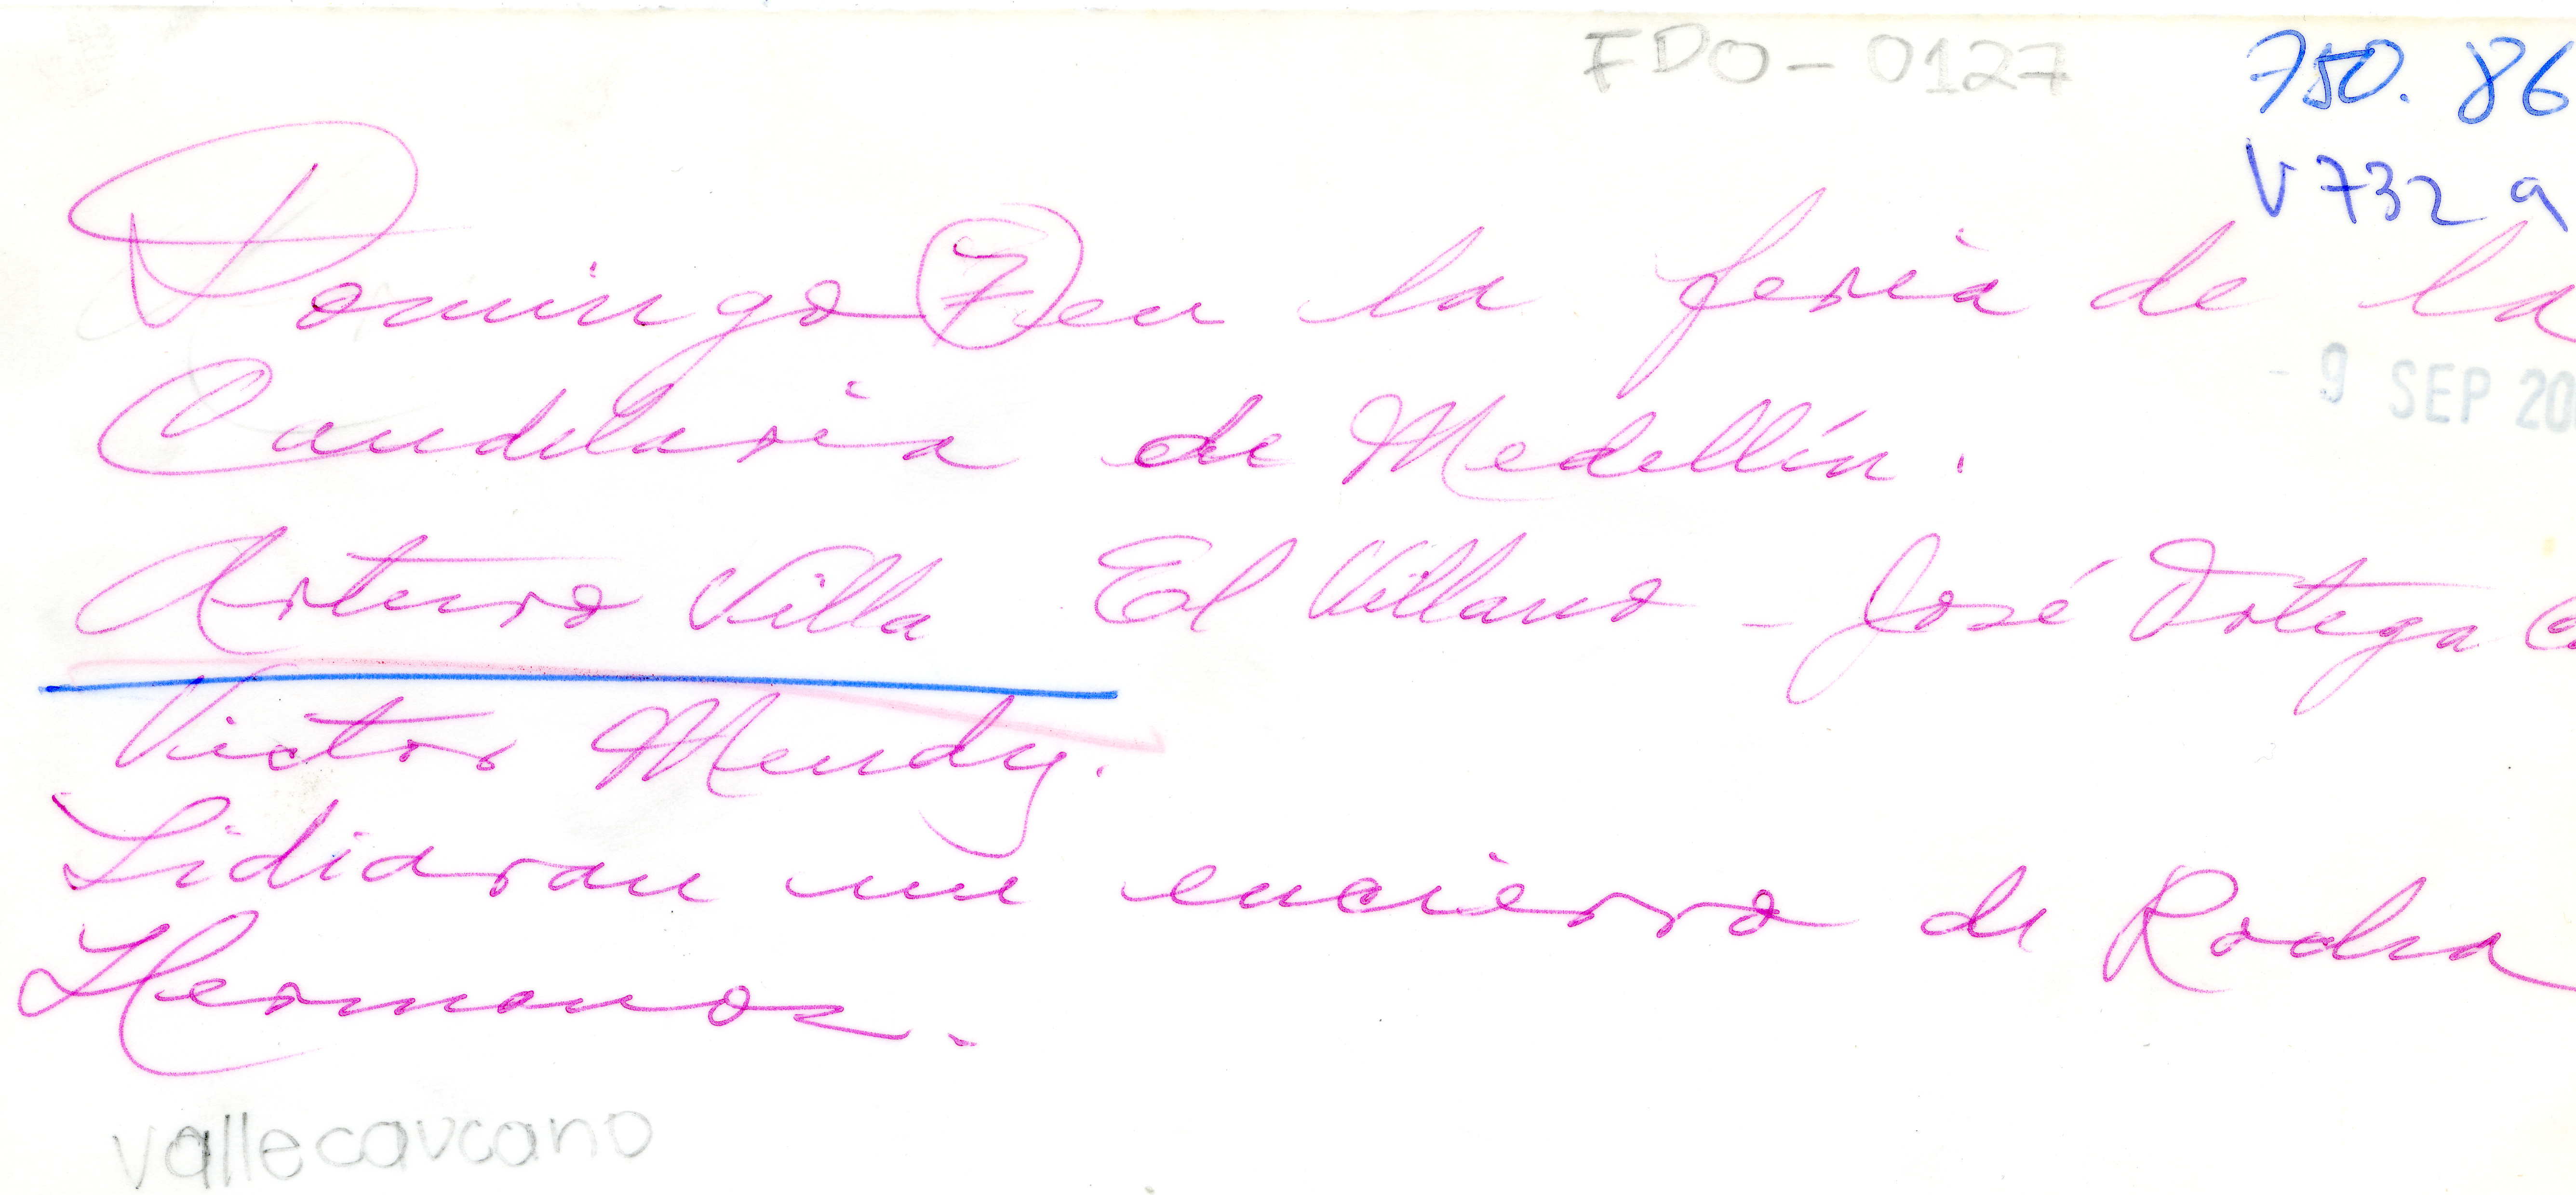 FDO - 0127
750. 86
V732 a
Domingo 7 en la feria de la
- 9 SEP 20
Candelaria de Medellín.
Arturo Villa El Villano - José Ortega
Victor Mendy.
Lidiaran un encierro de Rocha
Hermanos.
vallecaucano